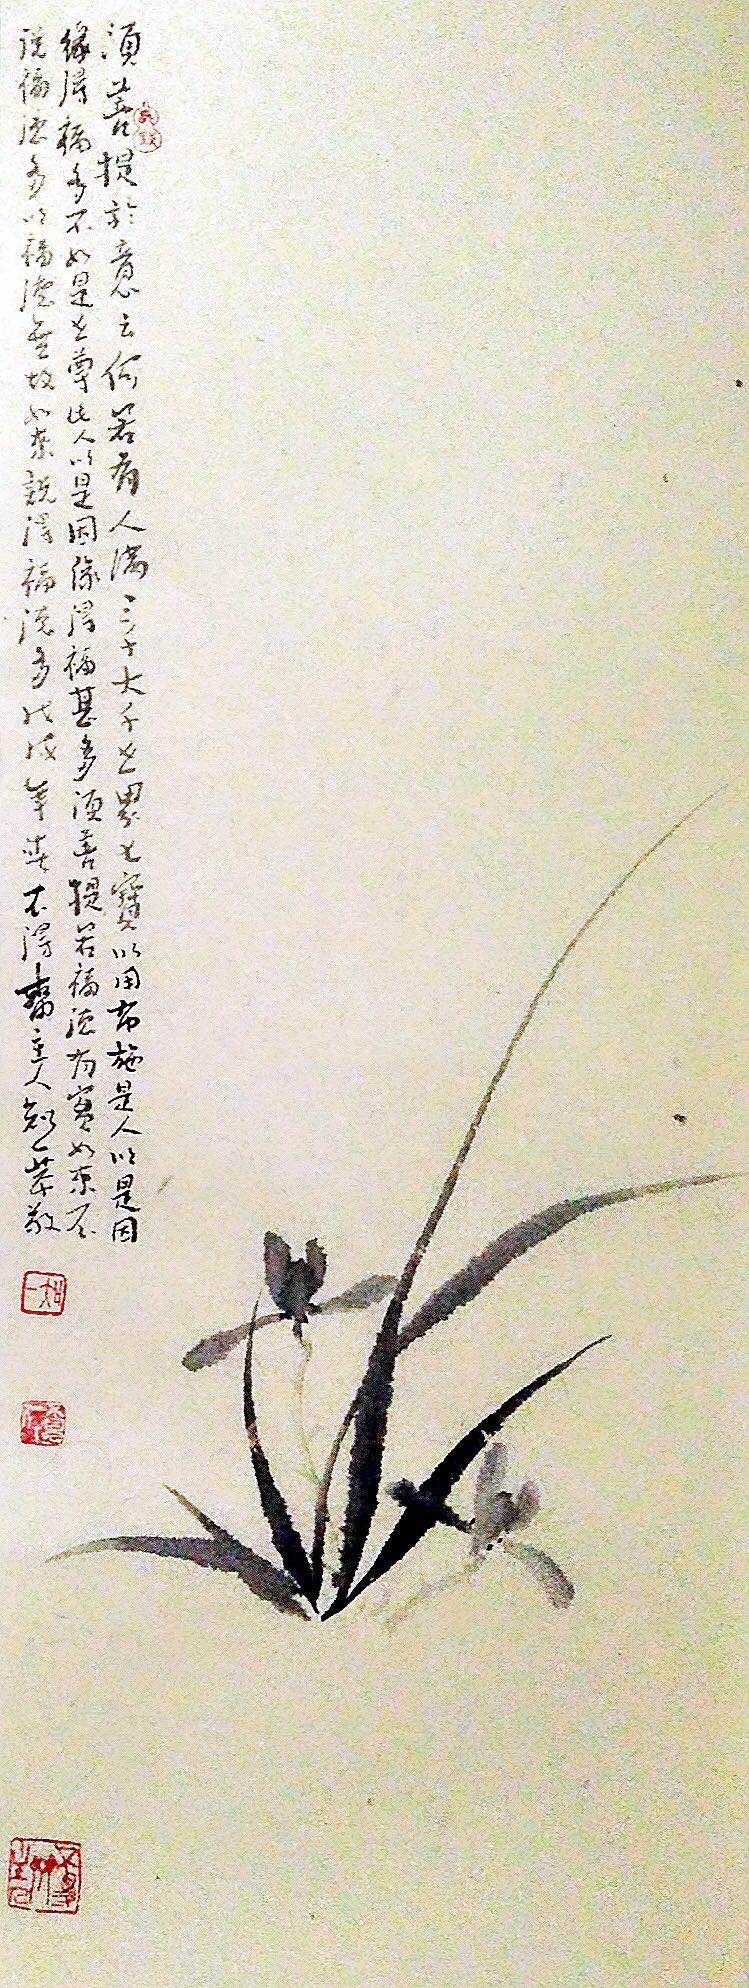 須菩提於意云何若有人滿三千大千世界七寶以用布施是人以是因
緣得福多不如是世尊此人以是因緣得福甚多須菩提若福德有實如來不
說福德多以福德無故如來說得福德多戊戌年 不得齋主人知一恭敬
知一